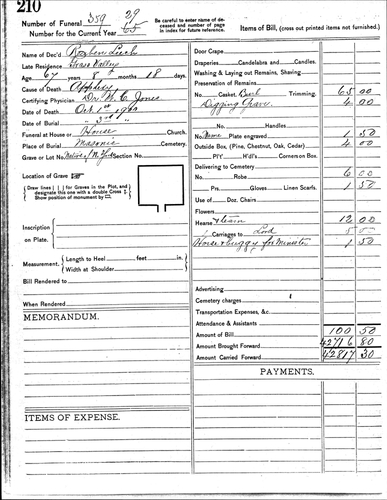 210
Number of Funeral 359 29
Number for the Current Year 65
Be careful to enter name of deceased and number of page in index for future reference.
Items of Bill, (cross out printed items not furnished.)
Name of Dec'd Reuben Leech
Late Residence Grass Valley
Age 67 years 8 " 18 days.
Cause of Death
Certifying Physician Dr W. C. Jones
Date of Death Oct 1st
Date of Burial " 3rd "
Funeral at House or House Church.
Place of Burial Masonic Cemetery.
Grave or Lot No. Native of Section No.
Location of Grave
Draw lines [ ] for Graves in the Plot, and designate this one with a double Cross
Show position of monument by
Inscription on Plate.
Measurement. Length to Heel feet in.
Width at Shoulder
Bill Rendered to
When Rendered
MEMORANDUM.
ITEMS OF EXPENSE.
Door Crape
Draperies Candelabras and Candles.
Washing & Laying out Remains, Shaving
Preservation of Remains
No. Casket, Trimming. 65 00
Digging Grave 4 00
No. Handles
No. Name Plate engraved 1 50
Outside Box, (Pine, Chestnut, Oak, Cedar) 4 00
P'l'y W'd'l's Corners on Box.
Delivering to Cemetery
No. Robe 6 00
Prs. Gloves Linen Scarfs. 1 50
Use of Doz. Chairs
Flowers
Hearse & team 12 00
Carriages to Lord 5 00
Horse & buggy for Minister 1 50
Advertising
Cemetery charges
Transportation Expenses, &c.
Attendance & Assistants
Amount of Bill 100 50
Amount Brought Forward 42716 80
Amount Carried Forward 42817 30
PAYMENTS.